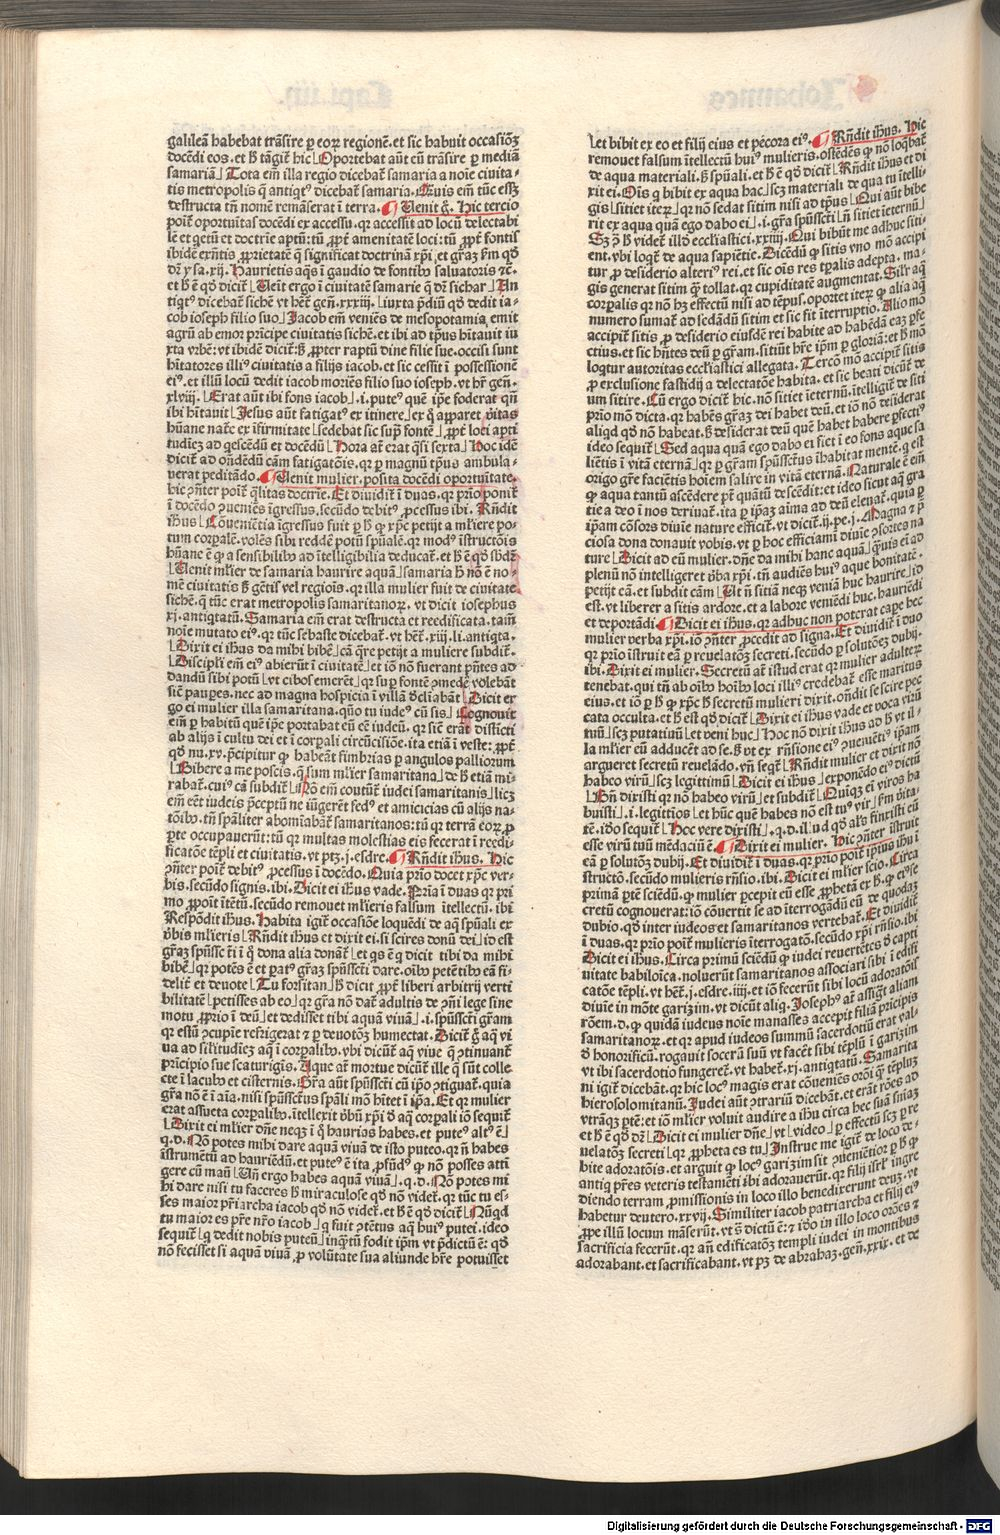 galileã habebat trãsire ꝑ eoꝝ regionẽ. et sic habuit occasiõȝ
docẽdi eos. et ħ tãgiť hic ⌊Oportebat aũt eũ trãsire ꝑ mediã
samariã⌋ Tota em̃ illa regio dicebať samaria a noĩe ciuita-
tis metropolis q̃ antiqⁱtꝰ dicebať samaria. Quis em̃ tũc eſſȝ
destructa tñ nomẽ remãserat ĩ terra. ¶ Uenit g̃. Hic tercio
poiť oportuitas docẽdi ex accessu. qꝛ accessit ad locũ delectabi
lẽ et qetũ et doctrĩe aptũ: tũ ꝓpť amenitatẽ loci: tũ ꝓpť fontis
ibidẽ exñtis ꝓprietatẽ q̃ significat doctrinã xp̃i. et gr̃aȝ ẜm qð
dr̃ ysa. xij. Haurietis aqs ĩ gaudio de fontibꝰ saluatoris ⁊c.
et ħ ẽ qð diciť ⌊Ueĩt ergo ĩ ciuitatẽ samarie q̃ dr̃ sichar⌋ An
tiqⁱtꝰ dicebať sichẽ vt hẽť geñ. xxxiij. ⌊iuxta p̃diũ qð dedit ia-
cob ioseph filio suo⌋ Jacob em̃ veniẽs de mesopotamia emit
agrũ ab emor prĩcipe ciuitatis sichẽ. et ibi ad tp̃us hĩtauit iu
xta vrbẽ: vt ibidẽ diciť: ẜ ꝓpter raptũ dine filie sue. occisi sunt
hĩtatores illiꝰ ciuitatis a filijs iacob. et sic cessit ĩ possessionẽ
eiꝰ. et illũ locũ dedit iacob moriẽs filio suo ioseph. vt hr̃ geñ.
xlviij. ⌊Erat aũt ibi fons iacob⌋ .i. puteꝰ quẽ ip̃e foderat qñ
ibi hĩtauit ⌊Jesus aũt fatigatꝰ ex itinere⌋ ex q̃ apparet v̾itas
hũane nať ex ĩfirmitate ⌊sedebat sic suꝑ fontẽ⌋ ꝓpť loci apti
tudĩeȝ ad qescẽdũ et docẽdũ ⌊Hora ať erat qsi ſexta⌋ Hoc idẽ
diciť ad oñdẽdũ cãm fatigatõis. qꝛ ꝑ magnũ tp̃us ambula-
uerat peditãdo. ¶ Uenit mulier. posita docẽdi oportuitate.
hic ꝯñter poiť qlitas doctrĩe. Et diuidiť ĩ duas. qꝛ prĩo poniť
ĩ docẽdo ꝯueniẽs ĩgressus. secũdo debitꝰ ꝓcessus ibi. Rñdit
ih̃us ⌊Cõueniẽtia ĩgressus fuit ꝑ ħ qꝫ xp̃c petijt a mĺiere po-
tum corꝑalẽ. volẽs sibi reddẽ potũ spũalẽ. qꝛ modꝰ ĩstructõis
hũane ẽ qꝫ a sensibilibꝰ ad ĩtelligibilia deducať. et ħ ẽ qð ſbdr̃
⌊Uenit mĺier de samaria haurire aquã⌋ samaria ħ nõ ẽ no-
mẽ ciuitatis ẜ gẽtis vel regiõis. qꝛ illa mulier fuit de ciuitate
sichẽ. q̃ tũc erat metropolis samaritanoꝝ. vt dicit iosephus
xj. antiqtatũ. Samaria em̃ erat destructa et reedificata. tam̃
noĩe mutato eiꝰ. qꝛ tũc sebaste dicebať. vt hẽť. xiij. li. antiqta.
⌊Dixit ei ih̃us da mihi bibẽ⌋ cã q̃re petijt a muliere subdiť.
⌊Discipĺi em̃ ei abierũt ĩ ciuitatẽ⌋ et iõ nõ fuerant p̃ntes ad
dandũ sibi potũ ⌊vt cibos emerẽt⌋ qꝛ suꝑ fontẽ ꝯmedẽ volebãt
siẽ pauꝑes. nec ad magna hospicia ĩ villã ðcliabãt ⌊Dicit er
go ei mulier illa samaritana. quõ tu iudeꝰ cũ sis⌋ Cognouit
em̃ ꝑ habitũ quẽ ip̃e portabat eũ eẽ iudeũ. qꝛ siẽ erãt disticti
ab alijs ĩ cultu dei et ĩ corꝑali circũcisiõe. ita etiã ĩ veste: ꝓpť
qð nu. xv. p̃cipitur qꝫ habeãt fimbrias ꝑ angulos palliorum
⌊Bibere a me poscis. q̃ sum mĺier samaritana⌋ de ħ etiã mi-
rabať. cuiꝰ cã subdiť ⌊Nõ em̃ coutũť iudei samaritanis⌋ licȝ
em̃ eẽt iudeis p̃ceptũ ne iũgerẽť fedꝰ et amicicias cũ alijs na-
tiõibꝰ. tñ spãliter abomĩabãť samaritanos: tũ qꝛ terrã eoꝝ ꝓ
ꝑte occupauerũt: tũ qꝛ multas molestias eis fecerãt ĩ reedi-
ficatõe tẽpli et ciuitatis. vt ptȝ. j. esdre. ¶ Rñdit ih̃us. Hic
ꝯñter poiť debitꝰ ꝓcessus ĩ docẽdo. Quia prĩo docet xp̃c ver-
bis. secũdo signis. ibi. Dicit ei ih̃us vade. Prĩa ĩ duas qꝛ pri
mo ꝓpoĩt ĩtẽtũ. secũdo remouet mĺieris falsum ĩtellectũ. ibi
Respõdit ih̃us. Habita igiť occasiõe loquẽdi de aq̃ spũali ex
v̾bis mĺieris ⌊Rñdit ih̃us et dixit ei. si scires donũ dei⌋ id est
gr̃aȝ spũsscť ĩ q̃ dona alia donãť ⌊et qs ẽ q dicit tibi da mihi
bibẽ⌋ qꝛ potẽs ẽ et ꝑatꝰ gr̃aȝ spũsscťi dare. oĩbꝰ petẽtibꝰ eã fi-
deliť et deuote ⌊Tu forsitan⌋ ħ dicit ꝓpť liberi arbitrij verti
bilitatẽ ⌊petisses ab eo⌋ qꝛ gr̃a nõ dať adultis de ꝯĩ lege sine
motu ꝓprio ĩ deũ⌊ et dedisset tibi aquã viuã⌋ .i. spũsscťi gr̃am
qꝛ essũ ꝯcupĩe refrigerat ⁊ ꝑ deuotõȝ humectat. Diciť g̃ aq̃ vi
ua ad siľitudĩeȝ aq̃ ĩ corꝑalibꝰ. vbi dicũť aq̃ viue q̃ ꝯtinuanť
prĩcipio sue scaturigĩs. Aque aťt mortue dicũť ille q̃ sũt colle
cte ĩ lacubꝰ et cisternis. Gr̃a aũt spũsscťi cũ ip̃o ꝯtiguať. quia
gr̃a nõ ẽ ĩ aĩa. nisi spũsscťus spãli mõ hĩtet ĩ ip̃a. Et qꝛ mulier
erat assueta corꝑalibꝰ. ĩtellexit v̾bũ xp̃i ð aq̃ corꝑali iõ sequiť
⌊Dixit ei mĺier dñe neqꝫ ĩ q̃ haurias habes. et puteꝰ altꝰ ẽ⌋
q. d. Nõ potes mihi dare aquã viuã de isto puteo. qꝛ ñ habes
ĩstrumẽtũ ad hauriẽdũ. et puteꝰ ẽ ita ꝓfũdꝰ qꝫ nõ posses atti
gere cũ manũ ⌊Uñ ergo habes aquã viuã⌋ .q. d. Nõ potes mi
hi dare nisi tu faceres ħ miraculose qð nõ videť. qꝛ tũc tu es-
ses maior pr̃iarcha iacob qð nõ videť. et ħ ẽ qð diciť ⌊Nũqd
tu maior es pr̃e nr̃o iacob⌋ q fuit ꝯtẽtus aq̃ huiꝰ putei. ideo
sequiť ⌊q dedit nobis puteũ⌋ inq̃tũ fodit ip̃m vt p̃dictũ ẽ: qð
nõ fecisset si aquã diuã ꝓ volũtate sua aliunde hr̃e potuisset
⌊et bibit ex eo et filij eius et pecora eiꝰ. ¶ Rñdit ih̃us. Hic
remouet falsum ĩtellectũ huiꝰ mulieris. ostẽdẽs qꝫ nõ loq̃baťt
de aqua materiali. ẜ spũali. et ħ ẽ qð diciť ⌊Rñdit ih̃us et di
xit ei. Oĩs q bibit ex aqua hac⌋ scȝ materiali de qua tu ĩtelli-
gis ⌊sitiet iteꝝ⌋ qꝛ nõ sedat sitim nisi ad tp̃us ⌊Qui aũt bibe
rit ex aqua quã ego dabo ei⌋ .i. gr̃a spũsscťi ⌊ñ sitiet ĩeternũ⌋
Sȝ ꝯ ħ videť illð eccĺiastici. xxiiij. Qui bibũt me adhuc siti-
ent. vbi loqť de aqua sapiẽtie. Dicẽdũ qꝫ sitis vno mõ accipi
tur ꝓ desiderio alteriꝰ rei. et sic oĩs res tꝑalis adepta. ma-
gis generat sitim q̃ tollat. qꝛ cupiditatẽ augmentat. Siľr aq̃
corꝑalis qꝛ nõ hȝ effectũ nisi ad tẽpus. oportet iteꝝ qꝫ alia aq̃
numero sumať ad sedãdũ sitim et sic fit ĩterruptio. Alio mõ
accipiť sitis ꝓ desiderio eiusdẽ rei habite ad habẽdã eaȝ ꝑfe
ctius. et sic hñtes deũ ꝑ gr̃am. sitiũt hr̃e ip̃m ꝑ gloriã: et ħ mõ
loqtur autoritas eccĺiastici allegata. Tercõ mõ accipiť sitis
ꝓ exclusione fastidij a delectatõe habita. et sic beati dicũť de
um sitire. Cũ ergo diciť hic. nõ sitiet ĩeternũ. ĩtelligiť de siti
prĩo mõ dicta. qꝛ habẽs gr̃aȝ dei habet deũ. et iõ nõ desiderat
aliqd qð nõ habeat. ẜ desiderat deũ quẽ habet habere ꝑfecti⁹
ideo sequiť ⌊Sed aqua quã ego dabo ei fiet ĩ eo fons aque sa
liẽtis ĩ vitã eternã⌋ qꝛ ꝑ gr̃am spũsscťus ĩhabitat mentẽ. q est
origo gr̃e faciẽtis hoĩem salire in vitã eternã. Naturale ẽ em̃
qꝫ aqua tantũ ascẽdere põt quãtũ descẽdit: et ideo sicut aq̃ gra
tie a deo ĩ nos deriuať. ita ꝑ ip̃aȝ aĩma ad deũ eleuať. quia ꝑ
ip̃am cõsors diuĩe nature efficiť. vt diciť. ij. pe. j. Magna ⁊ p̃
ciosa dona donauit vobis. vt ꝑ hoc efficiami diuĩe ꝯsortes na
ture ⌊Dicit ad eum mulier. dñe da mihi hanc aquã⌋ q̃uis ei ad
plenũ nõ intelligeret v̾ba xp̃i. tñ audiẽs huiꝰ aque bonitatẽ.
petijt eã. et subdit cãm ⌊Ut ñ sitiã neqꝫ veniã huc haurire⌋ id
est. vt liberer a sitis ardore. et a labore veniẽdi huc. hauriẽdi
et deportãdi. ¶ Dicit ei ih̃us. qꝛ adhuc non poterat cape hec
mulier verba xp̃i. iõ ꝯñter ꝓcedit ad signa. Et diuidiť ĩ duo
qꝛ prĩo ĩstruit eã ꝑ reuelatõeȝ secreti. secũdo ꝑ solutõeȝ dubij.
ibi. Dixit ei mulier. Secretũ aťt istud erat qꝛ mulier adulteꝝ
tenebat. qui tñ ab oĩbꝰ hoĩbꝰ loci illiꝰ credebať esse maritus
eius. et iõ ꝑ ħ qꝫ xp̃c ħ secretũ mulieri dixit. oñdit se scire pec
cata occulta. et ħ est qð diciť ⌊Dixit ei ih̃us vade et voca virũ
tuũ⌋ scȝ putatiuũ ⌊et veni huc⌋ Hoc nõ dixit ih̃us ad ħ vt il-
la mĺier eũ adduceť ad se. ẜ vt ex rñsione eiꝰ ꝯueniẽtiꝰ ip̃am
argueret secretũ reuelãdo. vñ seqť ⌊Rñdit mulier et dixit nõ
habeo virũ⌋ scȝ legittimũ ⌊Dicit ei ih̃us⌋ exponẽdo eiꝰ dictũ
⌊Bñ dixisti qꝛ nõ habeo virũ⌋ et subdiť ⌊Quĩqȝ ei viros ha
buisti⌋ .i. legittĩos ⌊et hũc quẽ habes nõ est tuꝰ vir⌋ ẜm v̾ita-
tẽ. iðo sequiť ⌊Hoc vere dixisti⌋ .q. d. il ud qð al's finxisti eũ
esse virũ tuũ mẽdaciũ ẽ. ¶ Dixit ei mulier. Hic ꝯñter ĩstruit
eã ꝑ solutõȝ dubij. Et diuidiť ĩ duas. qꝛ prĩo poiť ip̃ius ih̃u ĩ
structõ. secũdo mulieris rñsio. ibi. Dicit ei mĺier scio. Circa
primã ꝑtẽ sciẽdũ. qꝫ mulier ꝑcepit eũ esse. ꝓphetã ex ħ. qꝫ eiꝰ se
cretũ cognouerat: iõ cõuertit se ad ĩterrogãdũ eũ de quodaȝ
dubio. qð inter iudeos et samaritanos vertebať. Et diuidiť
ĩ duas. qꝛ prĩo poiť mulieris ĩterrogatõ. secũdo xp̃i rñsio. ibi
Dicit ei ih̃us. Circa primũ sciẽdũ qꝫ iudei reuertẽtes ð capti
uitate babiloĩca. noluerũt samaritanos associari sibi ĩ edifi
catõe tẽpli. vt hẽť. j. esdre. iiij. et iõ fecerũt sibi locũ adoratõis
diuĩe in mõte gariȝim. vt dicũt aliq. Josephꝰ aťt assigť aliam
rõem. d. qꝫ quidã iudeus noĩe manasses accepit filiã prĩcipis
samaritanoꝝ. et qꝛ apud iudeos summũ sacerdotiũ erat val-
ð honorificũ. rogauit socerũ suũ vt faceťt sibi tẽplũ ĩ gariȝim
vt ibi sacerdotio fungereť. vt habeť. xj. antiqtatũ. Samarita
ni igiť dicebãt. qꝛ hic locꝰ magis erat cõueniẽs orõi q̃ tẽpluȝ
hierosolomitanũ. Judei aũt ꝯtrariũ dicebãt. et erãt rões ad
vtrãqȝ ꝑtẽ: et iõ mĺier voluit audire a ih̃u circa hec suã sn̾iaȝ
et ħ ẽ qð dr̃ ⌊Dicit ei mulier dñe⌋ vt ⌊video⌋ ꝑ effectũ scȝ ꝑ re
uelatõeȝ secreti ⌊qꝛ ꝓpheta es tu⌋ Jnstrue me igiť de loco de-
bite adoratõis. et arguit qꝫ locꝰ gariȝim sit ꝯueniẽtior ꝑ ħ qꝫ
antiq pr̃es veteris testamẽti ibi adorauerũt. qꝛ filij isrl' ingre
diendo terram ꝓmissionis in loco illo benedixerunt deuȝ. vt
habetur deutero. xxvij. Similiter iacob patriarcha et filij eiꝰ
ꝓpe illũ locum mãserũt. vt s̾ dictũ ẽ: ⁊ iðo in illo loco orões ⁊
sacrificia fecerũt. qꝛ añ edificatõȝ templi iudei in montibus
adorabant. et sacrificabant. vt pȝ de abrahaȝ. geñ. xxix. et de
Digitalisierung gefördert durch die Deutsche Forschungsgemeinschaft - DFG